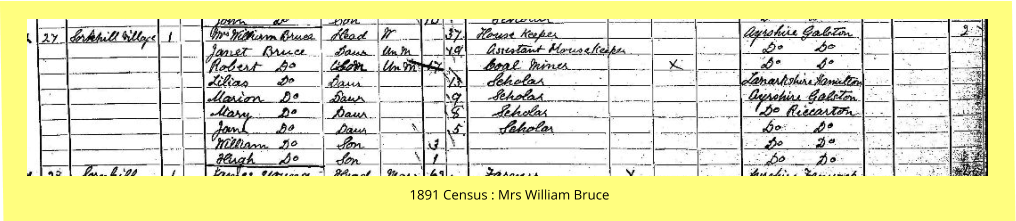 John Do Son 10 Scholar Do Do
27 Sornhill Village 1 Mrs William Bruce Head W 37 House Keeper Ayrshire Galston 2
Janet Bruce Daur UnM 19 Assistant Housekeeper Do Do
Robert Do Son UnM 17 Coal Miner X Do Do
Lilias Do Daur 13 Scholar Lanarkshire Hamilton
Marion Do Daur 9 Scholar Ayrshire Galston
Mary Do Daur 8 Scholar Do Riccarton
Jane Do Daur 5 Scholar Do Do
William Do Son 3 Do Do
Hugh Do Son 1 Do Do
Sornhill 1 Young Head Mar Farmer
1891 Census : Mrs William Bruce